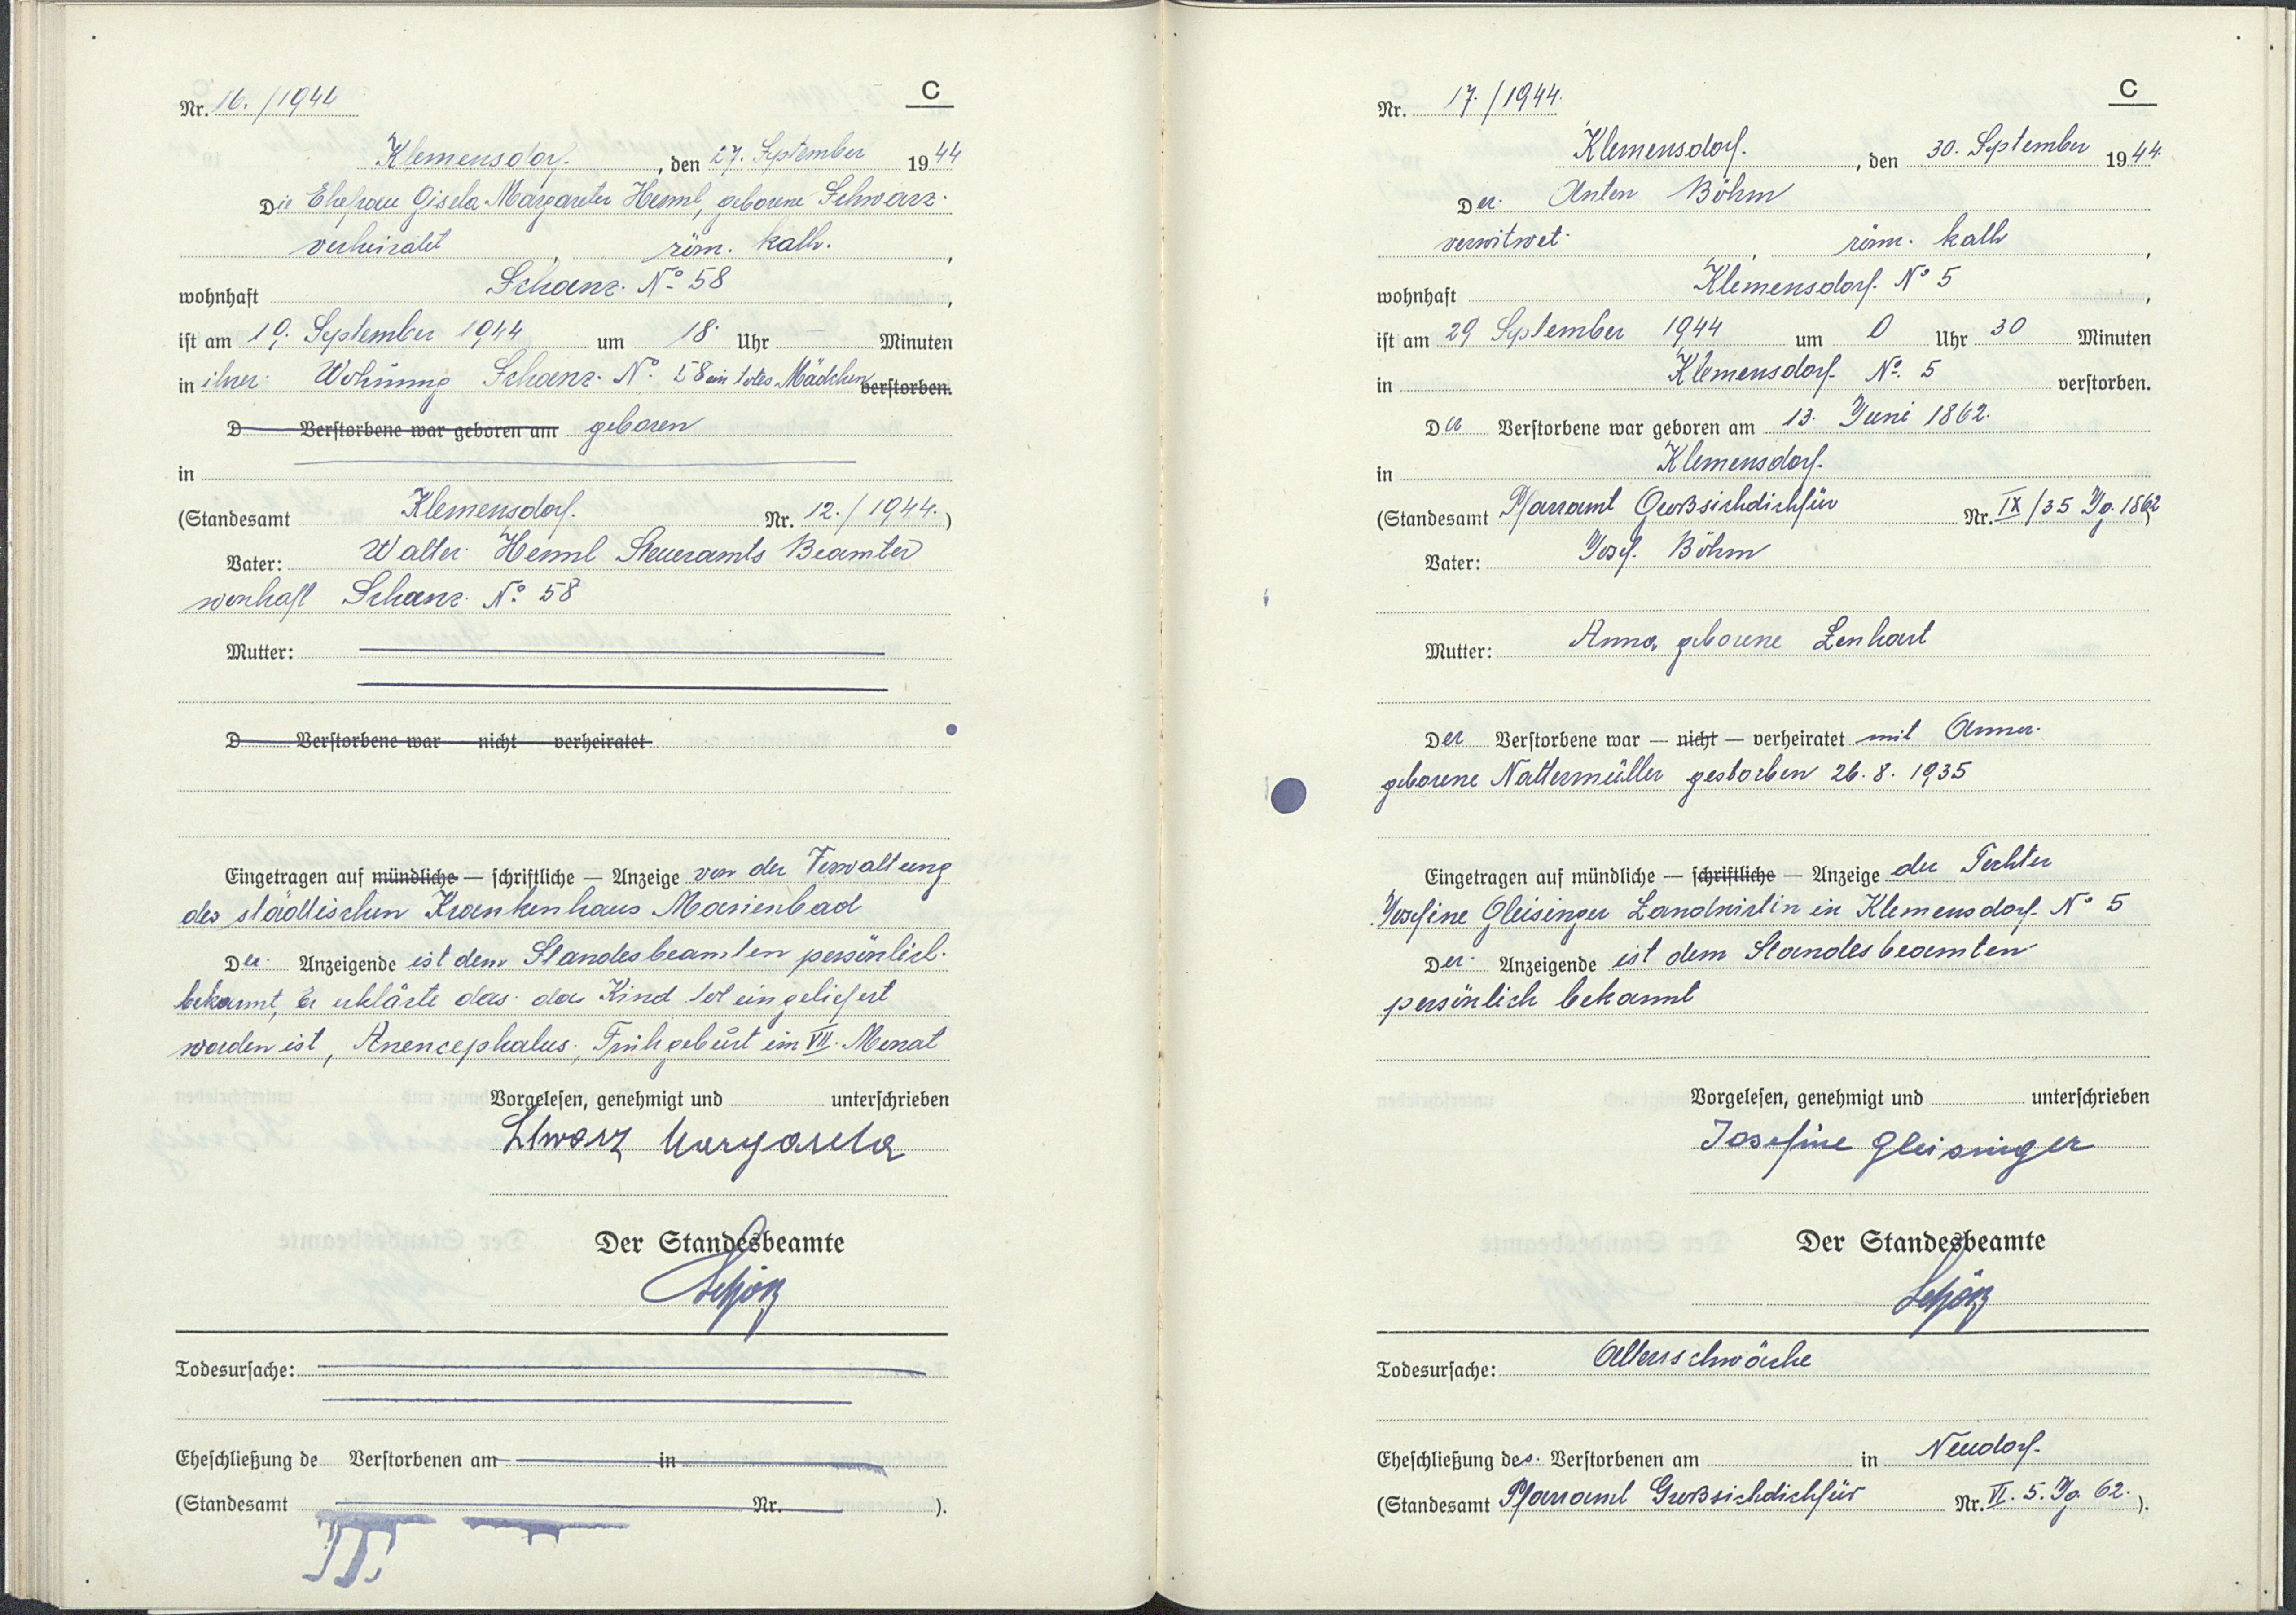 Nr. 16. /1944
C
Klemensdorf. , den 27. September 1944
Die Ehefrau Gisela Margareta Hemml, geborene Schwarz.
verheiratet , röm. kath. ,
wohnhaft Schanz. No 58 ,
ist am 19. September 1944 um 18. Uhr Minuten
in ihrer Wohnung Schanz. No. 58 ein totes Mädchen verstorben.
D Verstorbene war geboren am geboren
in
(Standesamt Klemensdorf. Nr. 12. / 1944. )
Vater: Walter Hemml Steueramts Beamter
wonhaft Schanz. No. 58
Mutter:
D Verstorbene war nicht verheiratet
Eingetragen auf mündliche — schriftliche — Anzeige von der Verwaltung
des städtischen Krankenhaus Marienbad
Der Anzeigende ist dem Standesbeamten persönlich
bekannt, Er erklärte das das Kind tot eingeliefert
worden ist, Anencephalus, Frühgeburt im VII. Monat
Vorgelesen, genehmigt und unterschrieben
Schwarz Margareta
Der Standesbeamte
Todesursache:
Eheschließung de Verstorbenen am in
(Standesamt Nr. ).
Nr. 17. / 1944.
C
Klemensdorf. , den 30. September 1944
Der Anton Böhm
verwitwet , röm. kath ,
wohnhaft Klemensdorf. No 5 ,
ist am 29 September 1944 um 0 Uhr 30 Minuten
in Klemensdorf No. 5 verstorben.
Der Verstorbene war geboren am 13. Juni 1862.
in Klemensdorf.
(Standesamt Pfarramt Großsichdichfür Nr. IX /35 Jg. 1862)
Vater: Josef. Böhm
Mutter: Anna geborene Lenhart
Der Verstorbene war — nicht — verheiratet mit Anna
geborene Nattermüller gestorben 26. 8. 1935
Eingetragen auf mündliche — schriftliche — Anzeige der Tochter
Josefine Gleisinger Landwirtin in Klemensdorf No 5
Der Anzeigende ist dem Standesbeamten
persönlich bekannt
Vorgelesen, genehmigt und unterschrieben
Josefine Gleisinger
Der Standesbeamte
Todesursache: Altersschwäche
Eheschließung des Verstorbenen am in Neudorf.
(Standesamt Pfarramt Großsichdichfür Nr. VI. 5. Jg. 62. ).